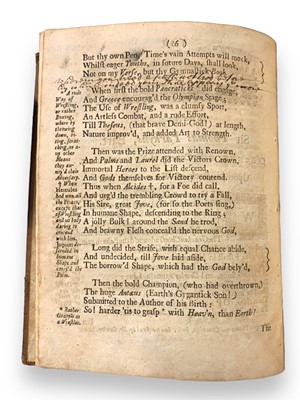 ( 16 )
But thy own Pen, Time's vain Attempts will mock,
Whilst eager Youths, in future Days, shall look,
Not on my Verse, but thy Gymnastick Book.
When first the bold Pancraticks * did engage,
And Greece encourag'd the Olympian Stage;
The Use of Wrestling, was a clumsy Sport,
An Artless Combat, and a rude Effort,
Till Theseus, (that brave Demi-God!) at length,
Nature improv'd, and added Art to Strength.
Then was the Prize attended with Renown,
And Palms and Laurel did the Victors Crown,
Immortal Heroes to the List descend,
And Gods themselves for Victory contend.
Thus when Alcides †, for a Foe did call,
And urg'd the trembling Crowd to try a Fall,
His Sire, great Jove, (for so the Poets sing,)
In humane Shape, defending to the Ring;
A jolly Bulk! around the Sand he trod,
And brawny Flesh conceal'd the nervous God.
Long did the Strife, with equal Chance abide,
And undecided, till Jove laid aside,
The borrow'd Shape, which had the God bely'd,
Then the bold Champion, (who had overthrown,)
The huge Antæus (Earth's Gygantick Son!)
Submitted to the Author of his Birth:
So! harder 'tis to grasp * with Heav'n, than Earth!
* A rude
Way of
Wrestling,
or rather
Boxing,
where by
throwing
down,
or other
Means
they
† When
Hercules
had won
all the
Prizes,
except
Wrestling
and no
body
daring to
contend
with him,
Jupiter
in
humane
Shape
and
the Palm.
* Rather
Grapple as
a Wrestler.